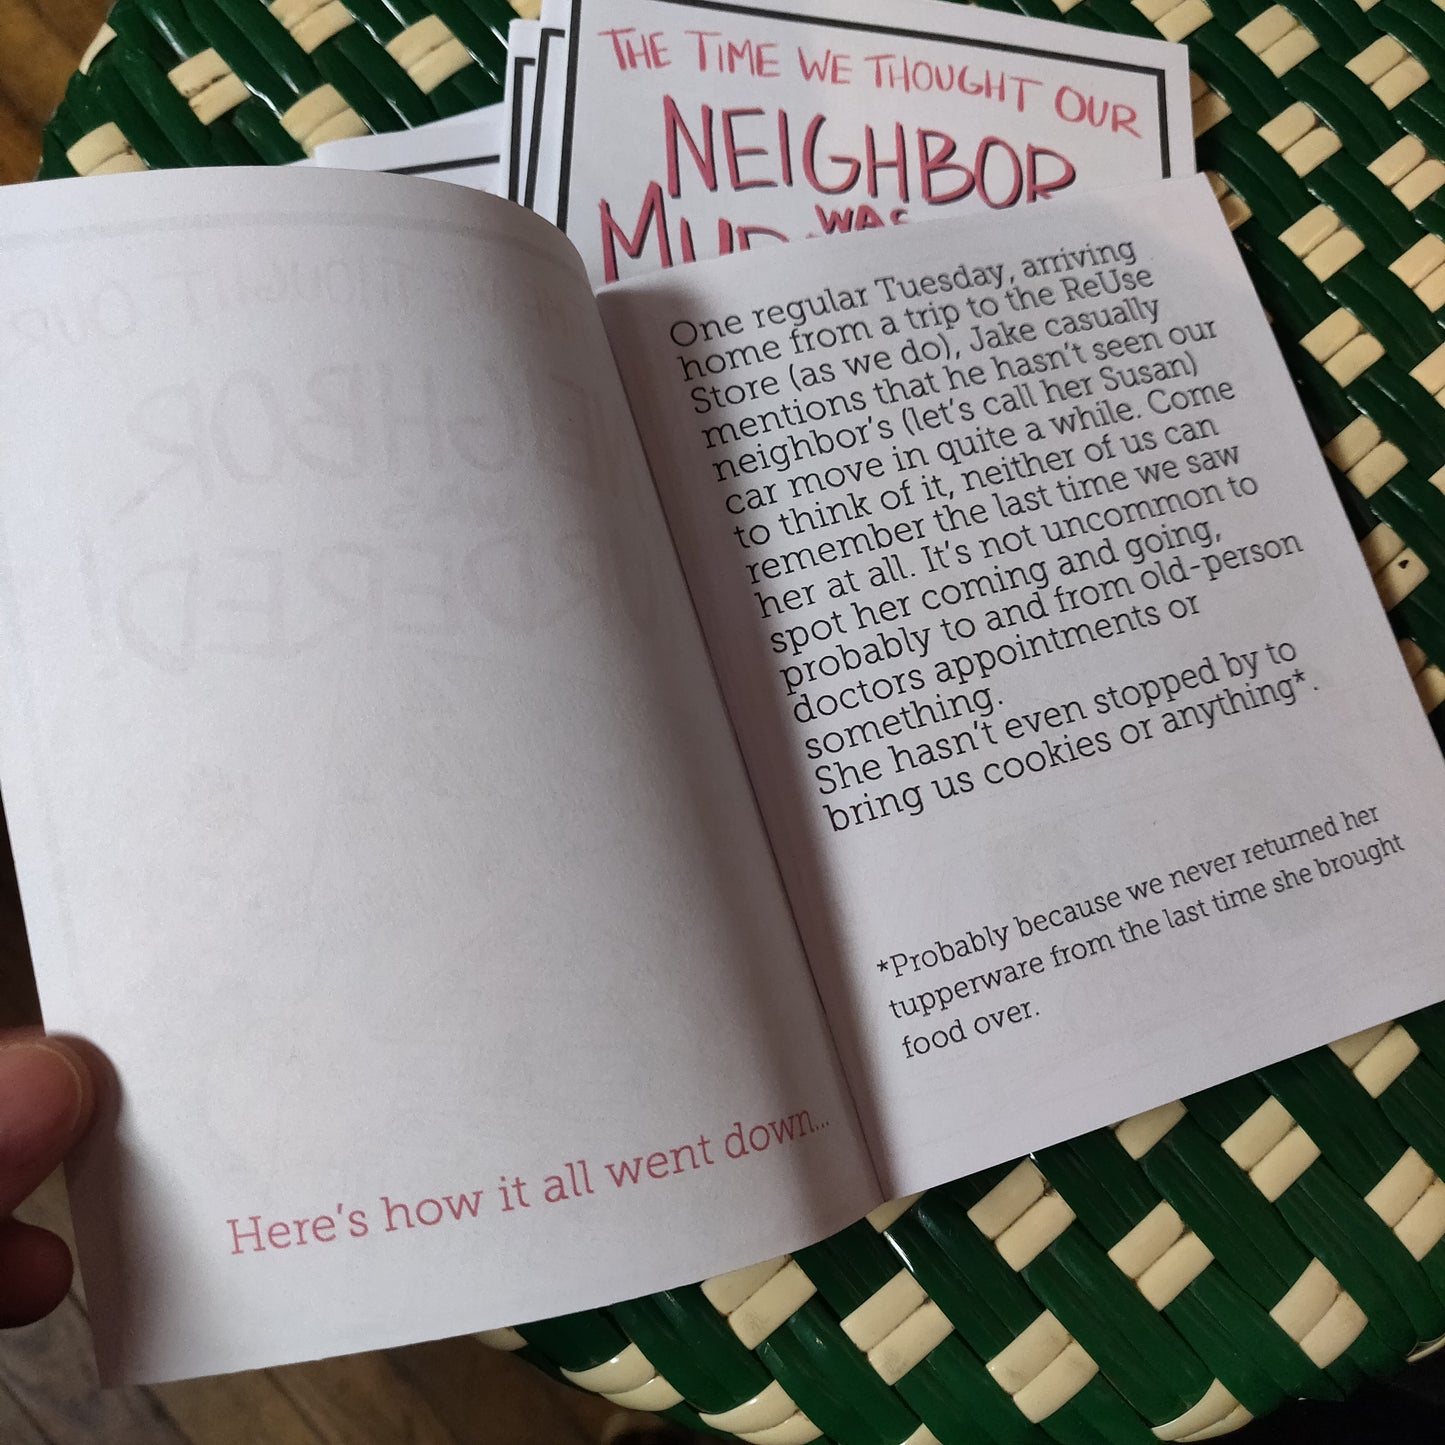 THE TIME WE THOUGHT OUR
NEIGHBOR
WAS
Here's how it all went down...
One regular Tuesday, arriving
home from a trip to the ReUse
Store (as we do), Jake casually
mentions that he hasn't seen our
neighbor's (let's call her Susan)
car move in quite a while. Come
to think of it, neither of us can
remember the last time we saw
her at all. It's not uncommon to
spot her coming and going,
probably to and from old-person
doctors appointments or
something.
She hasn't even stopped by to
bring us cookies or anything*.
*Probably because we never returned her
tupperware from the last time she brought
food over.